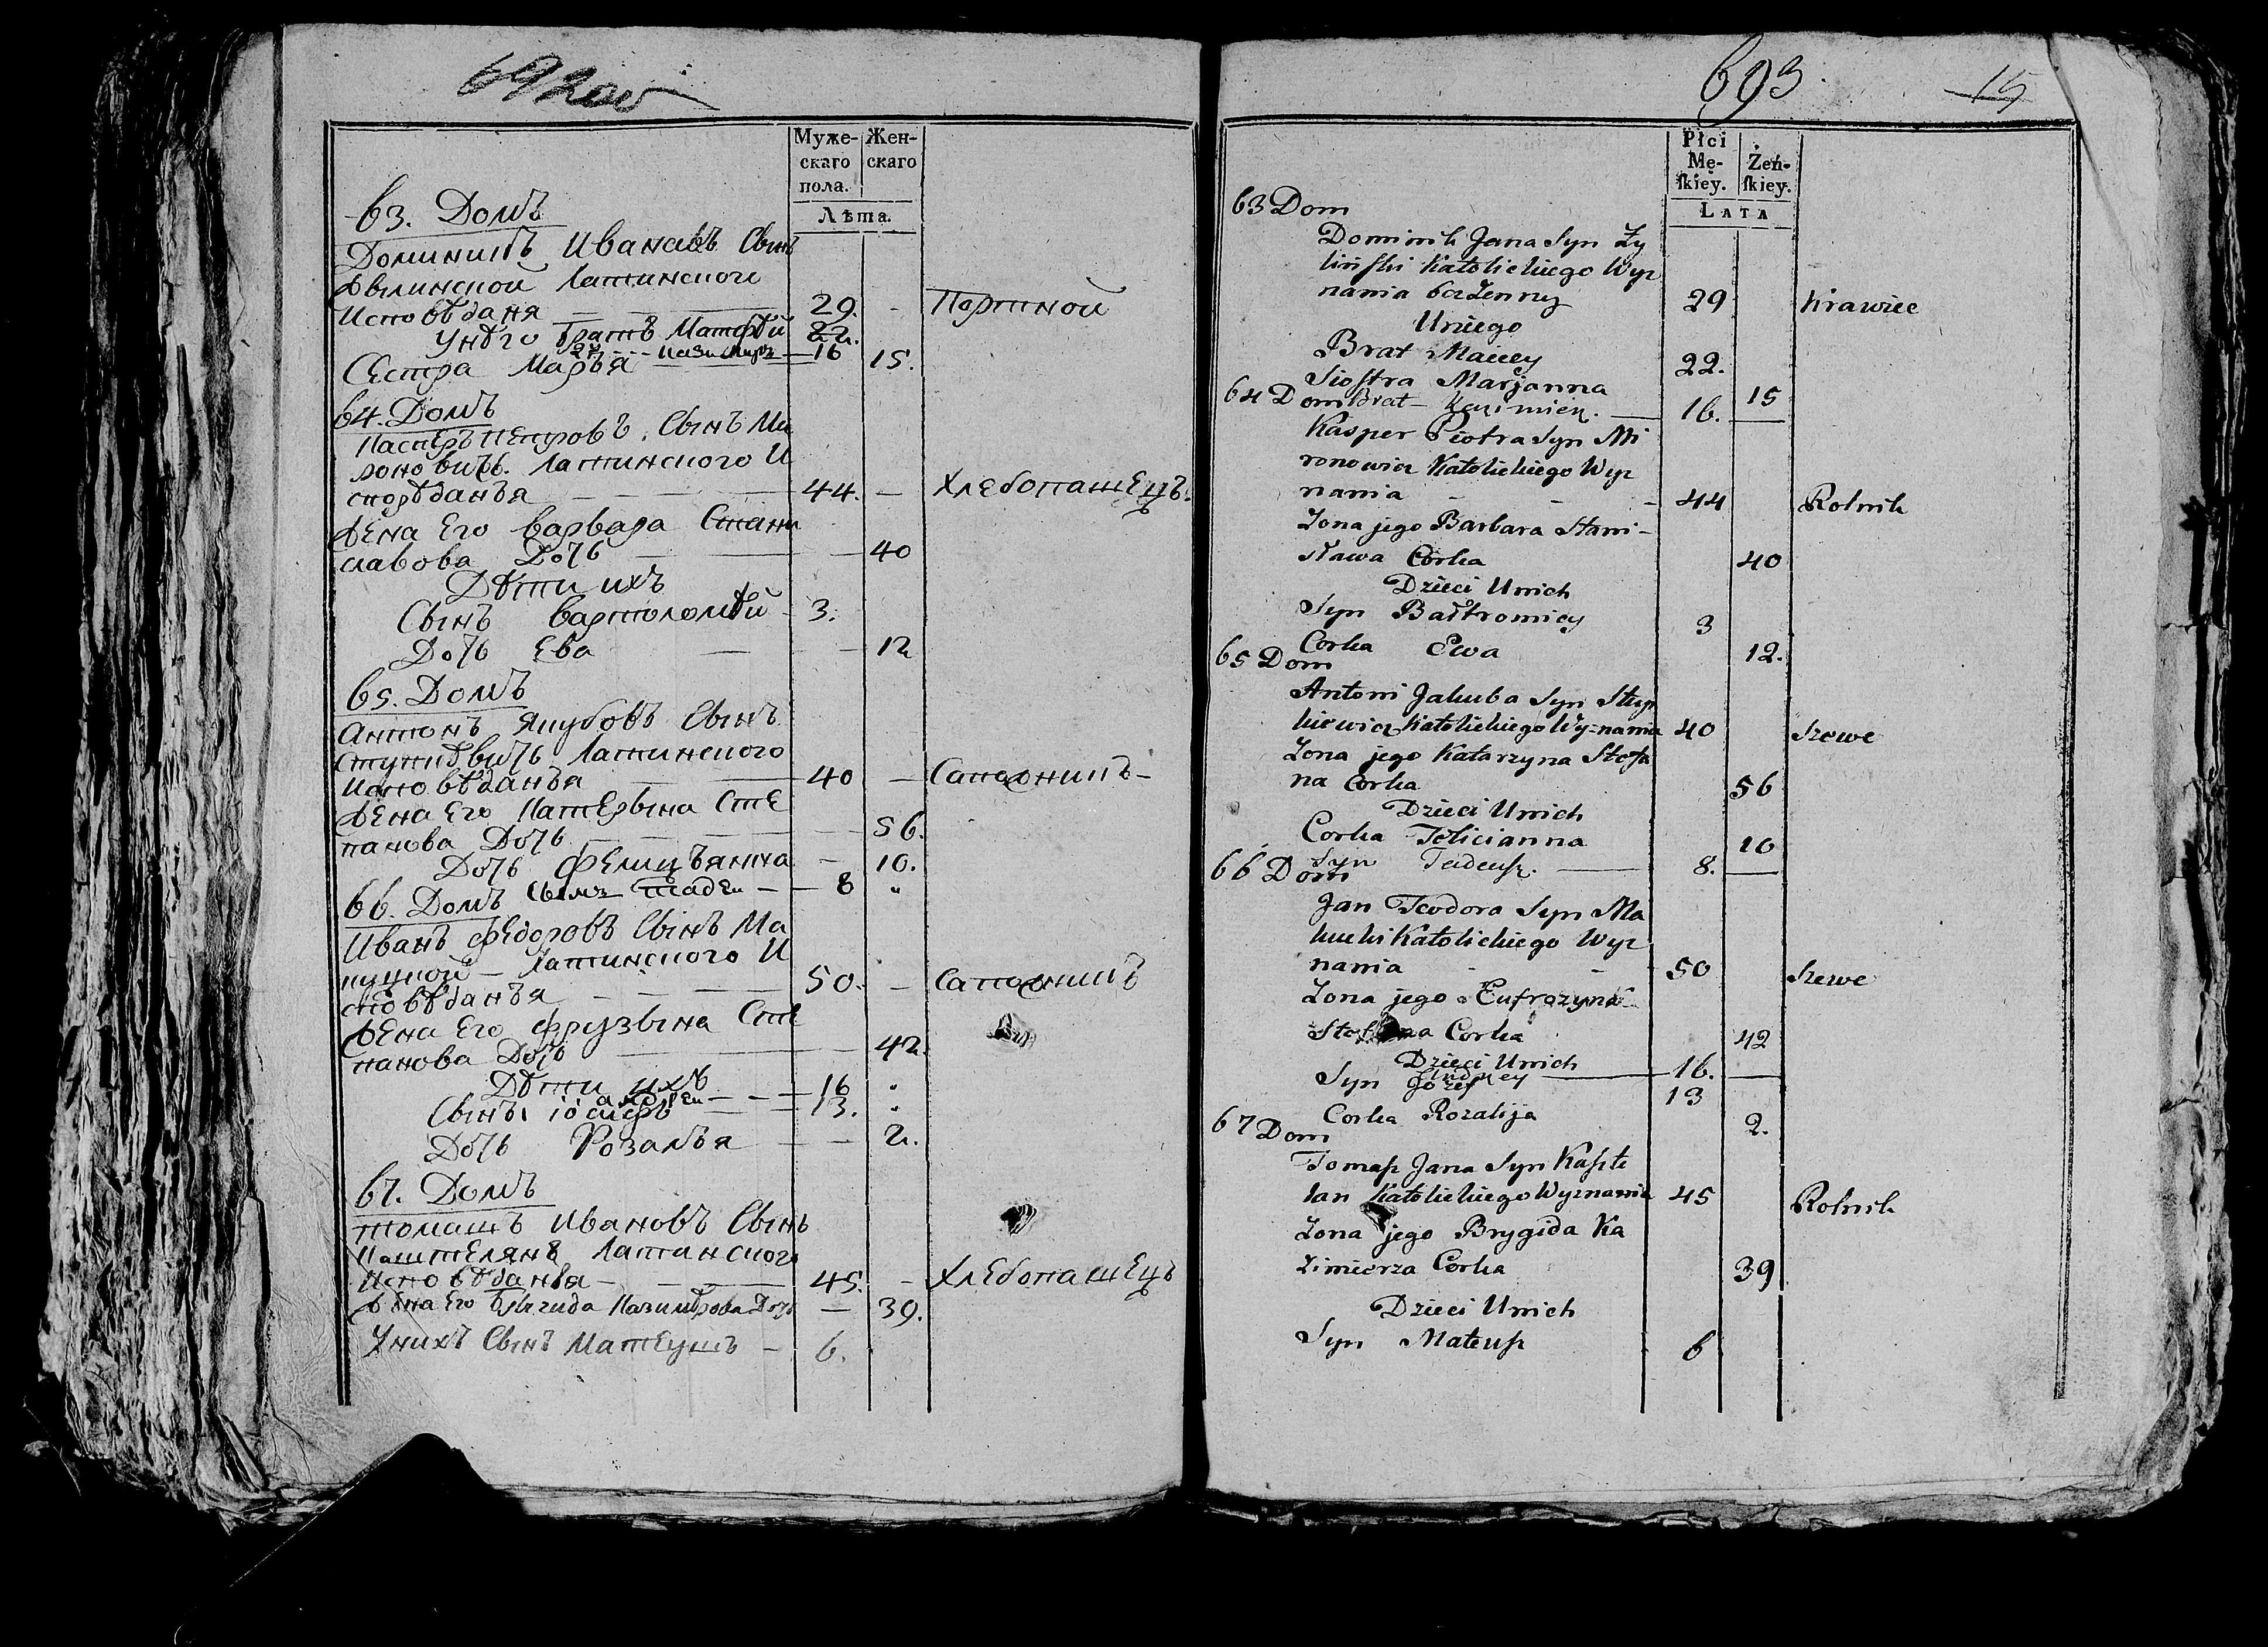 692 об
Муже-
скаго
пола.
Жен-
скаго
Лѣта.
63. Домъ
Доминикъ Ивановъ Сынъ
Жылинской Латинского
Исповѣданя — 29. - Портной
У него братъ Матфѣй 22.
— Казимиръ — 16
Сестра Марья — 15.
64. Домъ
Касперъ Петровъ Сынъ Ми
роновичъ Латинского И
сповѣданья — 44. — Хлебопашецъ.
Жена Его Варвара Стани
славова Дочь — 40
Дѣти ихъ
Сынъ Вартоломѣй - 3.
Дочь Ева — 12
65. Домъ
Антонъ Якубовъ Сынъ
Ступкѣвичь Латинского
Исповѣданья — 40 — Сапожникъ
Жена Его Катержына Сте
панова Дочь — 56.
Дочь Фелицьянна — 10.
Сынъ Тадеи — 8 "
66. Домъ
Иванъ Федоровъ Сынъ Ма
куцкой Латинского И
сповѣданья — 50. — Сапожникъ
Жена Его Фрузына Сте
панова Дочь — 42.
Дѣти ихъ
Андреи — 16 "
Сынъ Іосифъ — 13. "
Дочь Розалья — 2.
67. Домъ
Томашъ Ивановъ Сынъ
Каштелянъ Латинского
Исповѣданья — 45. - Хлебопашецъ
Жена Его Брыгида Казимѣрова Дочь — 39.
У нихъ Сынъ Матеушъ - 6.
693.
15
Płci
Mę-
ſkiey.
Żeń-
ſkiey.
LATA
63 Dom
Dominik Jana Syn Ży
liński Katolickiego Wyz
nania bezżenny 29 Krawiec
U niego
Brat Maciey 22.
Siostra Marjanna 15
Brat Kazimierz. — 16. —
64 Dom
Kasper Piotra Syn Mi
ronowicz Katolickiego Wyz
nania - - 44 Rolnik
Zona jego Barbara Stani-
sława Corka 40
Dzieci U nich
Syn Bałtromiey 3
Corka Ewa 12.
65 Dom
Antoni Jakuba Syn Stup
kiewicz Katolickiego Wyznania 40 Szewc
Zona jego Katarzyna Stefa
na Corka 56
Dzieci U nich
Corka Felicianna 10
Syn Tadeusz. — 8. —
66 Dom
Jan Teodora Syn Ma
kucki Katolickiego Wyz
nania - - 50 Szewc
Zona jego Eufrozyna
Stefana Corka 42
Dzieci U nich
Andrzey — 16. —
Syn Józef 13
Corka Rozalija 2.
67 Dom
Tomasz Jana Syn Kaszte
lan Katolickiego Wyznania 45 Rolnik
Zona jego Brygida Ka
zimierza Corka 39
Dzieci U nich
Syn Mateusz 6